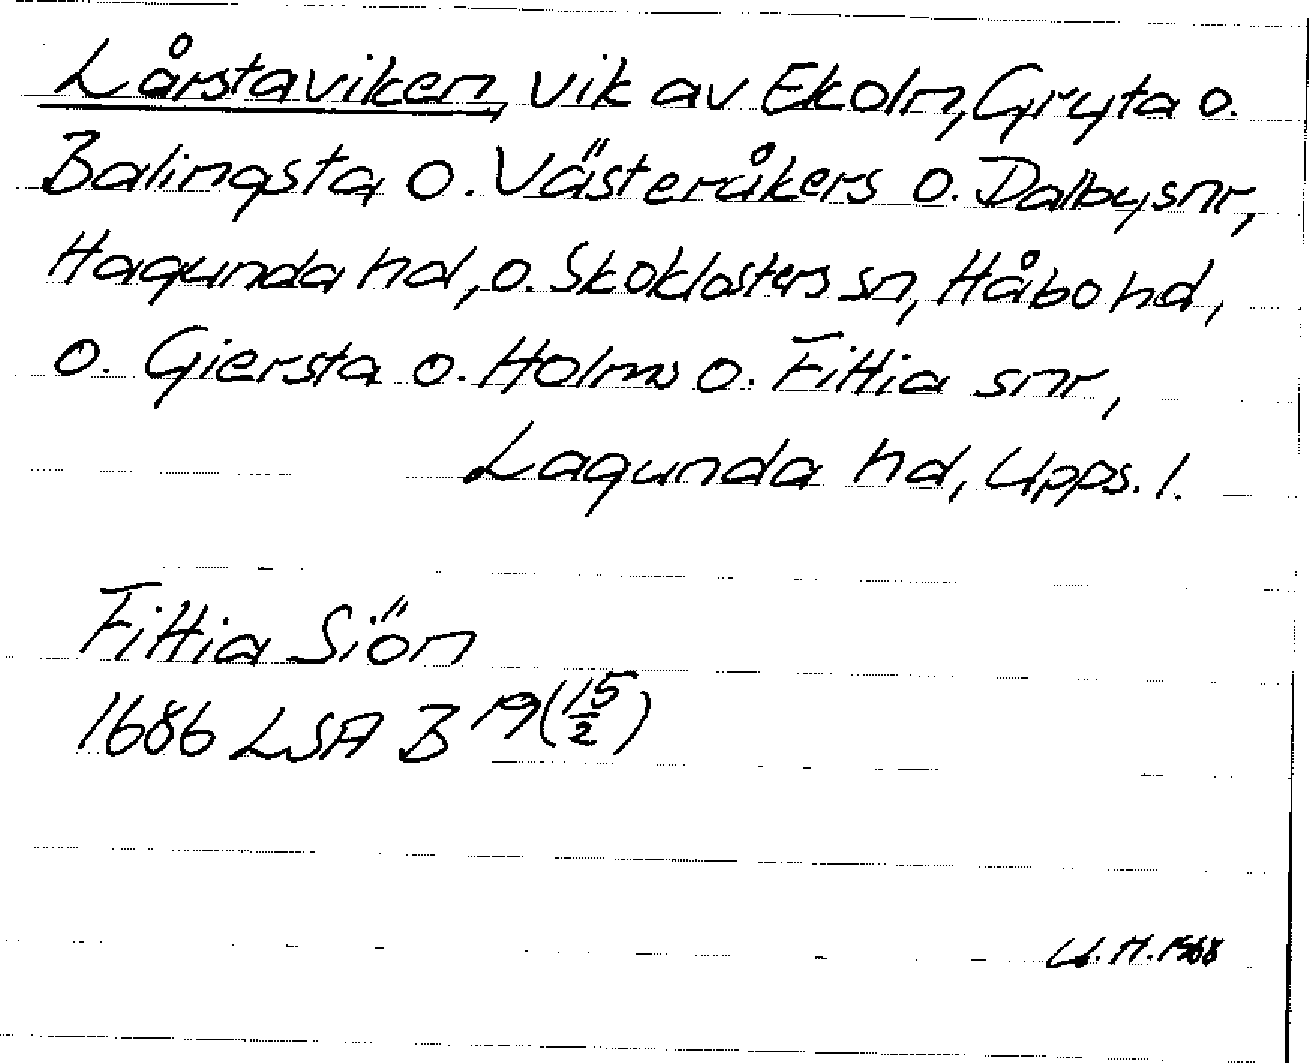 Lårstaviken, vik av Ekoln, Gryta o.
Balingsta o. Västeråkers o. Dalby snr,
Hagunda hd, o. Skoklosters sn, Håbo hd,
o. Giersta o. Holms o. Fittja snr,
Lagunda hd, Upps. l.
Fittia Siön
1686 LSA B 19 (15/2)
U.H. 1968